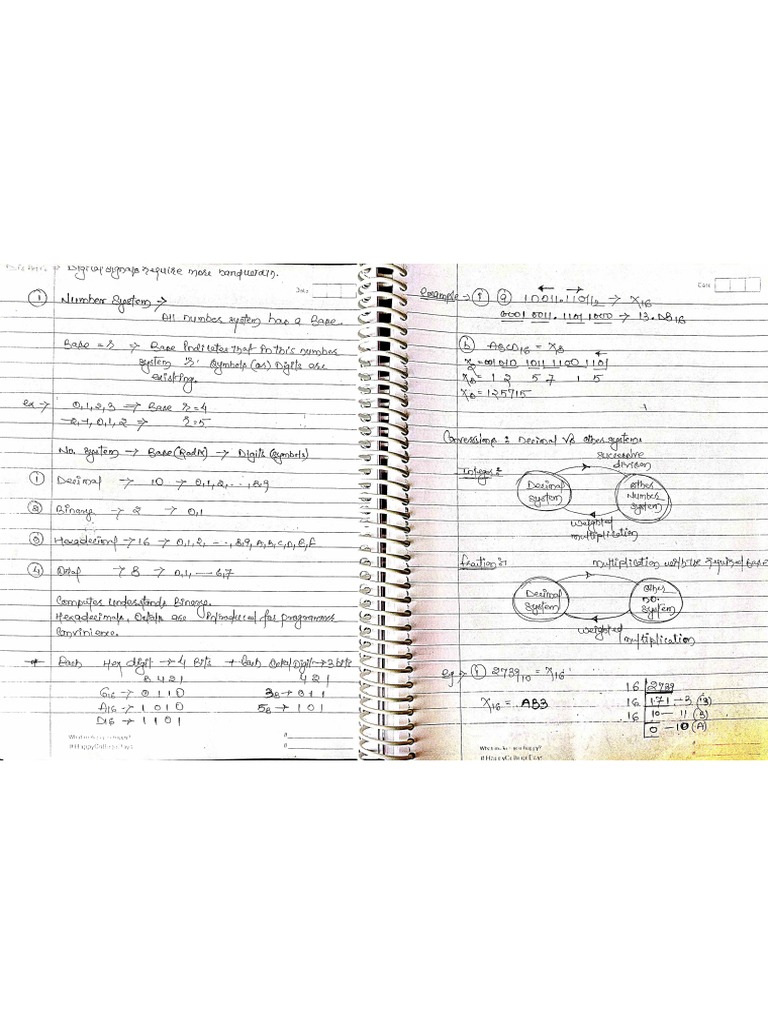 Digital signals require more bandwidth.
Date
① Number System →
All number system has a Base.
Base = r → Base indicates that in this number
system 'r' Symbols (or) Digits are
existing.
ex → 0,1,2,3 → Base r = 4
-2,-1,0,1,2 → r = 5
No. System → Base (Radix) → Digits (Symbols)
① Decimal → 10 → 0,1,2,...,8,9
② Binary → 2 → 0,1
③ Hexadecimal → 16 → 0,1,2,---,8,9,A,B,C,D,E,F
④ Octal → 8 → 0,1,---6,7
Computer understands Binary.
Hexadecimals, Octals are introduced for programmers
convinience.
* Each Hex digit → 4 Bits * Each Octal Digit → 3 bits
8 4 2 1 4 2 1
6₁₆ → 0 1 1 0 3₈ → 0 1 1
A₁₆ → 1 0 1 0 5₈ → 1 0 1
D₁₆ → 1 1 0 1
#HappyCollegeDays
Date
Example → ① ⓐ 10011.11011₂ → X₁₆
0001 0011.1101 1000 → 13.D8₁₆
ⓑ ABCD₁₆ = X₈
X₈ = 001010 1011 1100 1101
X₈ = 1 2 5 7 1 5
X₈ = 125715
Conversions : Decimal Vs other system
successive
division
Integer :
Decimal
System
Other
Number
System
weighted
multiplication
fraction :
multiplication with the required base
Decimal
System
Other
no.
System
weighted
multiplication
eg → ① 2739₁₀ = X₁₆
X₁₆ = AB3
16 2739
16 171 - 3 (3)
16 10 - 11 (B)
0 - 10 (A)
#HappyCollegeDays